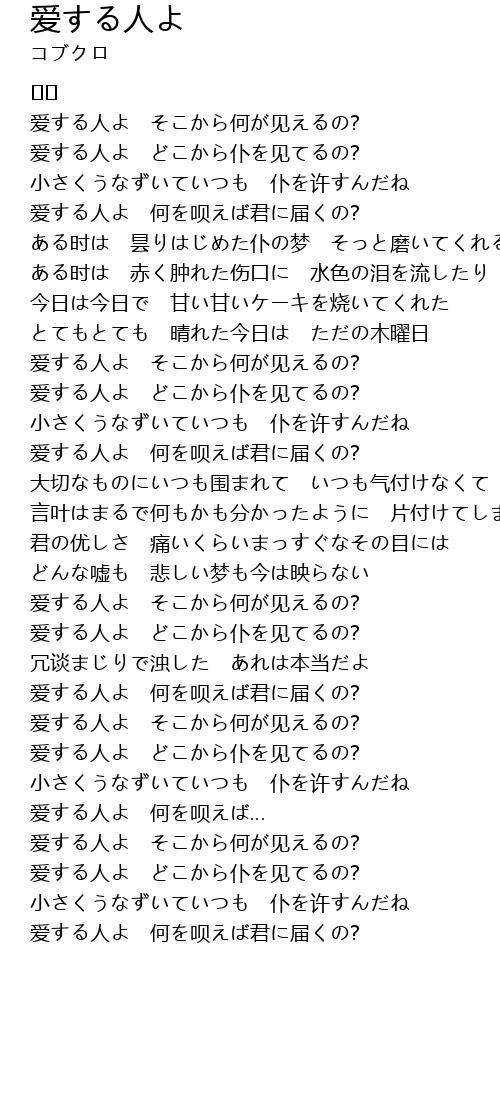 爱する人よ
コブクロ
爱する人よ　そこから何が见えるの?
爱する人よ　どこから仆を见てるの?
小さくうなずいていつも　仆を许すんだね
爱する人よ　何を呗えば君に届くの?
ある时は　昙りはじめた仆の梦　そっと磨いてくれる
ある时は　赤く肿れた伤口に　水色の泪を流したり
今日は今日で　甘い甘いケーキを烧いてくれた
とてもとても　晴れた今日は　ただの木曜日
爱する人よ　そこから何が见えるの?
爱する人よ　どこから仆を见てるの?
小さくうなずいていつも　仆を许すんだね
爱する人よ　何を呗えば君に届くの?
大切なものにいつも囲まれて　いつも気付けなくて
言叶はまるで何もかも分かったように　片付けてしま
君の优しさ　痛いくらいまっすぐなその目には
どんな嘘も　悲しい梦も今は映らない
爱する人よ　そこから何が见えるの?
爱する人よ　どこから仆を见てるの?
冗谈まじりで浊した　あれは本当だよ
爱する人よ　何を呗えば君に届くの?
爱する人よ　そこから何が见えるの?
爱する人よ　どこから仆を见てるの?
小さくうなずいていつも　仆を许すんだね
爱する人よ　何を呗えば...
爱する人よ　そこから何が见えるの?
爱する人よ　どこから仆を见てるの?
小さくうなずいていつも　仆を许すんだね
爱する人よ　何を呗えば君に届くの?